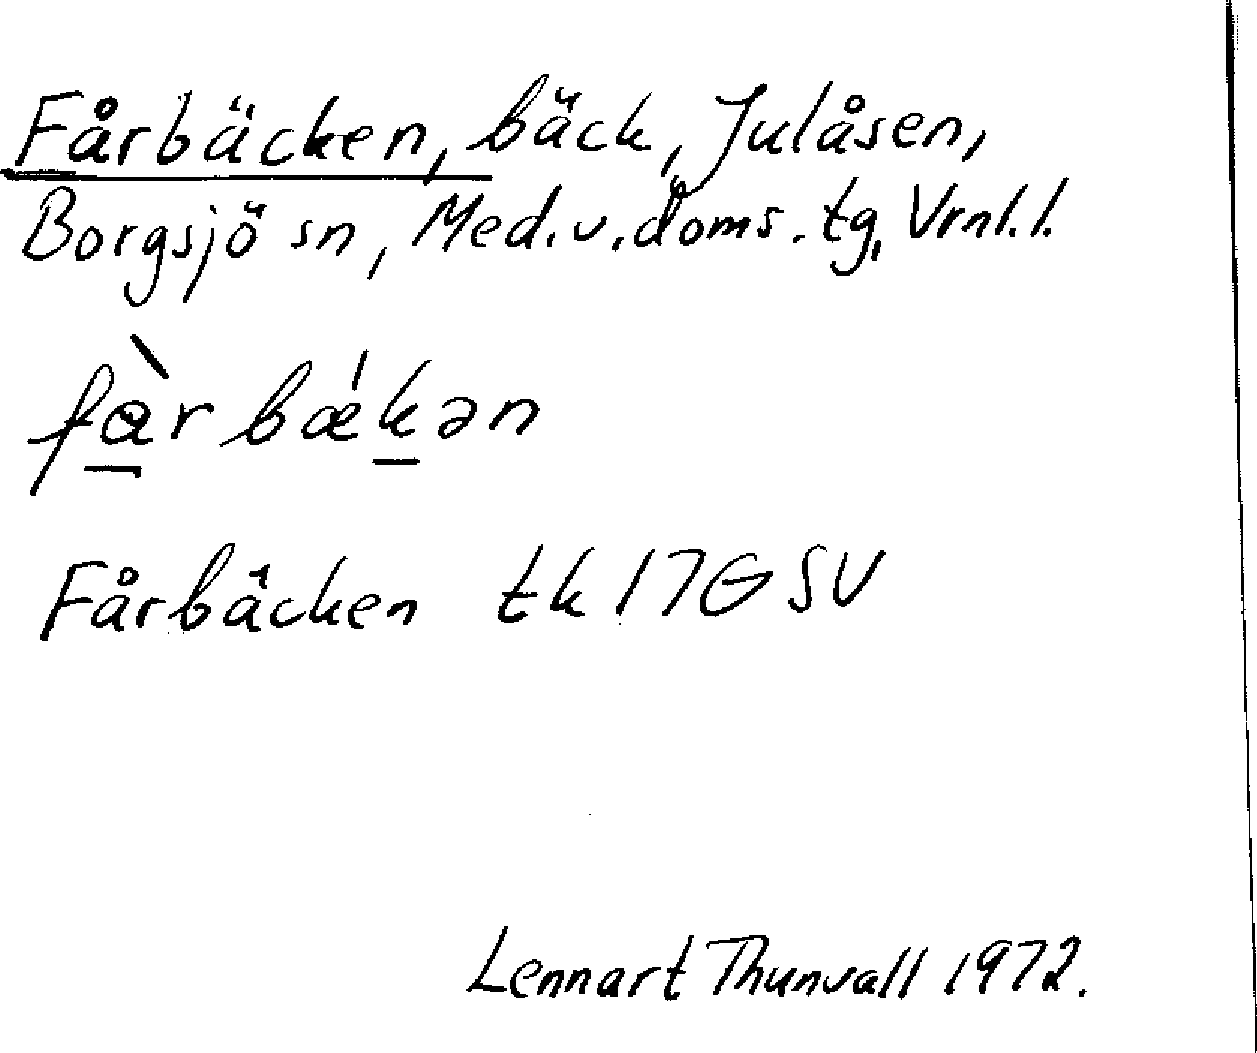 Fårbäcken, bäck, Julåsen,
Borgsjö sn, Med.v.doms.tg, Vrnl.l.
fàrbǽkən
Fårbäcken tk 17G SV
Lennart Thunvall 1972.